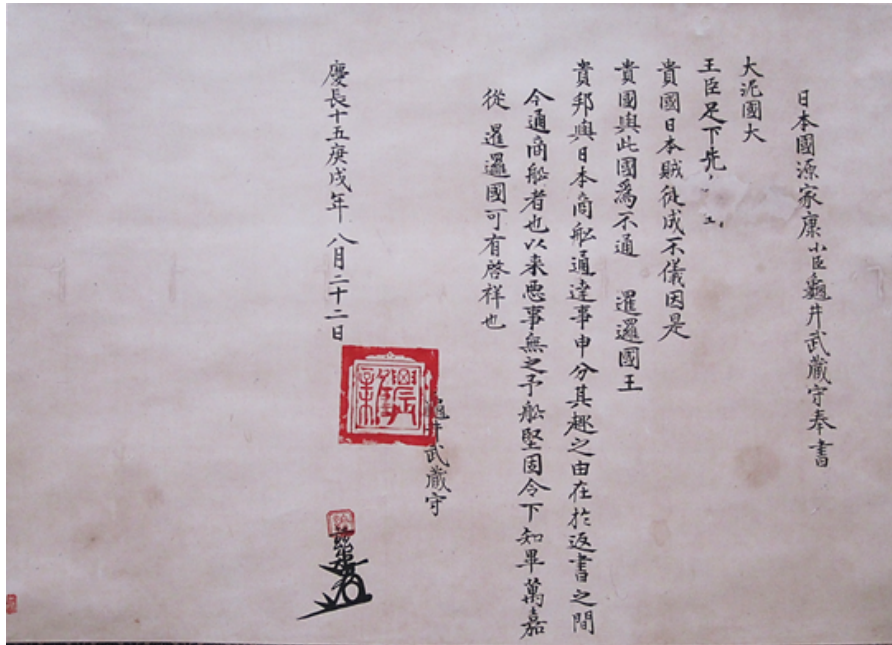 日本國源家康小臣龜井武藏守奉書
大泥國大
王臣足下先
貴國日本賊徒成不儀因是
貴國與此國爲不通 暹邏國王
貴邦與日本商舩通達事申分其趣之由在於返書之間
令通商舩者也以来悪事無之予舩堅固令下知畢萬嘉
從 暹邏國可有啓祥也
慶長十五庚戌年 八月二十二日
龜井武藏守